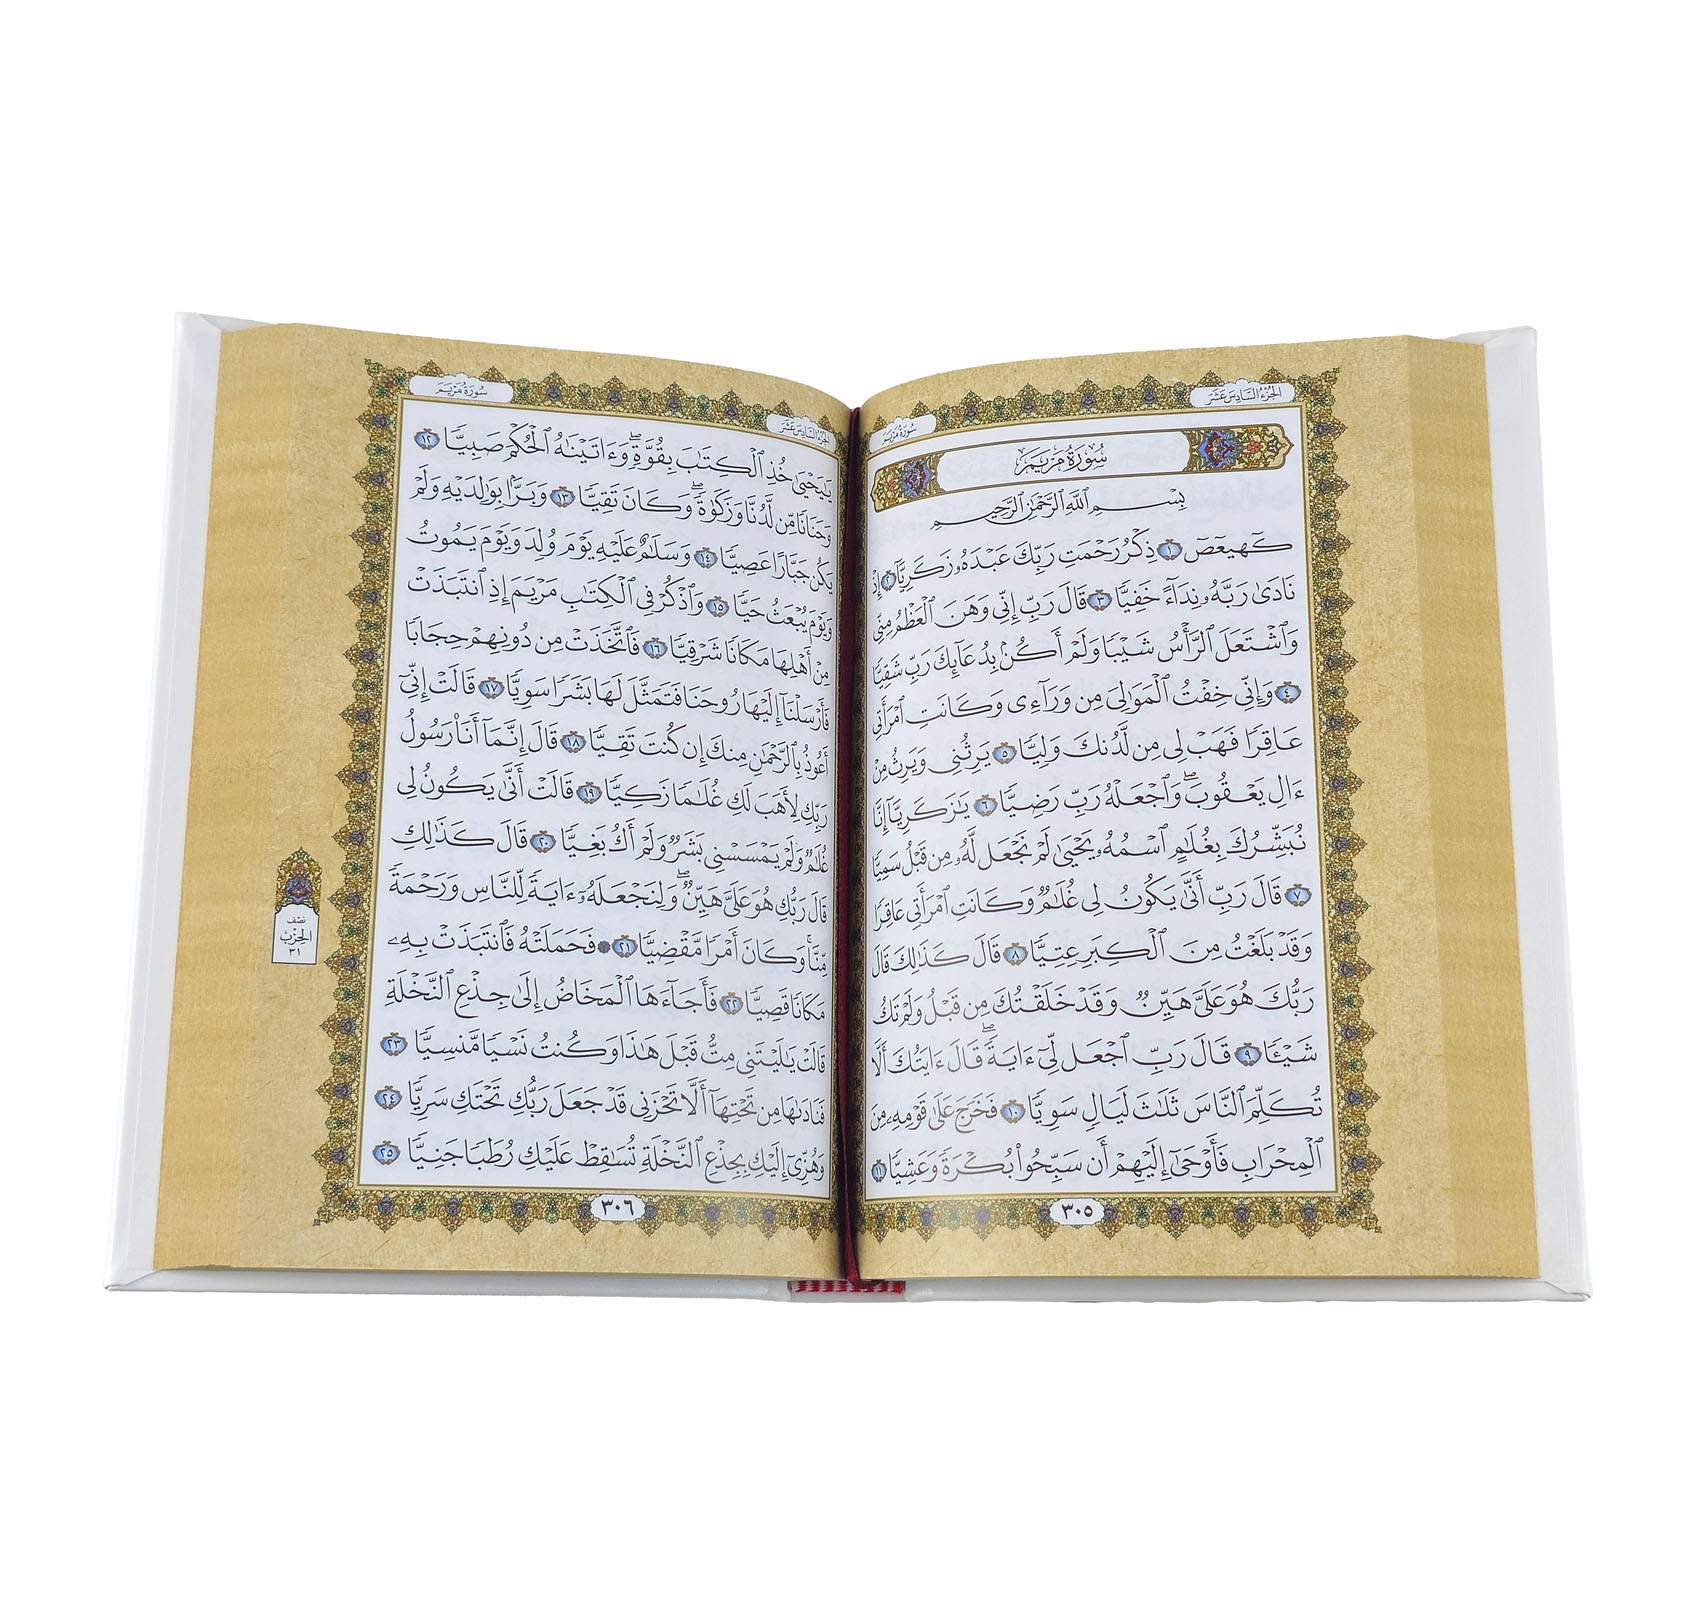 الجزء السادس عشر
سورة مريم
سُورَةُ مَرْيَمَ
بِسْمِ ٱللَّهِ ٱلرَّحْمَٰنِ ٱلرَّحِيمِ
كٓهيعٓصٓ ١ ذِكْرُ رَحْمَتِ رَبِّكَ عَبْدَهُۥ زَكَرِيَّآ ٢ إِذْ
نَادَىٰ رَبَّهُۥ نِدَآءً خَفِيًّا ٣ قَالَ رَبِّ إِنِّي وَهَنَ ٱلْعَظْمُ مِنِّي
وَٱشْتَعَلَ ٱلرَّأْسُ شَيْبًا وَلَمْ أَكُنۢ بِدُعَآئِكَ رَبِّ شَقِيًّا
٤ وَإِنِّي خِفْتُ ٱلْمَوَٰلِيَ مِن وَرَآءِي وَكَانَتِ ٱمْرَأَتِي
عَاقِرًا فَهَبْ لِي مِن لَّدُنكَ وَلِيًّا ٥ يَرِثُنِي وَيَرِثُ مِنْ
ءَالِ يَعْقُوبَۖ وَٱجْعَلْهُ رَبِّ رَضِيًّا ٦ يَٰزَكَرِيَّآ إِنَّا
نُبَشِّرُكَ بِغُلَٰمٍ ٱسْمُهُۥ يَحْيَىٰ لَمْ نَجْعَل لَّهُۥ مِن قَبْلُ سَمِيًّا
٧ قَالَ رَبِّ أَنَّىٰ يَكُونُ لِي غُلَٰمٌ وَكَانَتِ ٱمْرَأَتِي عَاقِرًا
وَقَدْ بَلَغْتُ مِنَ ٱلْكِبَرِ عِتِيًّا ٨ قَالَ كَذَٰلِكَ قَالَ
رَبُّكَ هُوَ عَلَيَّ هَيِّنٌ وَقَدْ خَلَقْتُكَ مِن قَبْلُ وَلَمْ تَكُ
شَيْـًٔا ٩ قَالَ رَبِّ ٱجْعَل لِّيٓ ءَايَةًۖ قَالَ ءَايَتُكَ أَلَّا
تُكَلِّمَ ٱلنَّاسَ ثَلَٰثَ لَيَالٍ سَوِيًّا ١٠ فَخَرَجَ عَلَىٰ قَوْمِهِۦ مِنَ
ٱلْمِحْرَابِ فَأَوْحَىٰٓ إِلَيْهِمْ أَن سَبِّحُوا۟ بُكْرَةً وَعَشِيًّا ١١
٣٠٥
الجزء السادس عشر
سورة مريم
يَٰيَحْيَىٰ خُذِ ٱلْكِتَٰبَ بِقُوَّةٍۖ وَءَاتَيْنَٰهُ ٱلْحُكْمَ صَبِيًّا ١٢
وَحَنَانًا مِّن لَّدُنَّا وَزَكَوٰةًۖ وَكَانَ تَقِيًّا ١٣ وَبَرًّۢا بِوَٰلِدَيْهِ وَلَمْ
يَكُن جَبَّارًا عَصِيًّا ١٤ وَسَلَٰمٌ عَلَيْهِ يَوْمَ وُلِدَ وَيَوْمَ يَمُوتُ
وَيَوْمَ يُبْعَثُ حَيًّا ١٥ وَٱذْكُرْ فِي ٱلْكِتَٰبِ مَرْيَمَ إِذِ ٱنتَبَذَتْ
مِنْ أَهْلِهَا مَكَانًا شَرْقِيًّا ١٦ فَٱتَّخَذَتْ مِن دُونِهِمْ حِجَابًا
فَأَرْسَلْنَآ إِلَيْهَا رُوحَنَا فَتَمَثَّلَ لَهَا بَشَرًا سَوِيًّا ١٧ قَالَتْ إِنِّيٓ
أَعُوذُ بِٱلرَّحْمَٰنِ مِنكَ إِن كُنتَ تَقِيًّا ١٨ قَالَ إِنَّمَآ أَنَا۠ رَسُولُ
رَبِّكِ لِأَهَبَ لَكِ غُلَٰمًا زَكِيًّا ١٩ قَالَتْ أَنَّىٰ يَكُونُ لِي
غُلَٰمٌ وَلَمْ يَمْسَسْنِي بَشَرٌ وَلَمْ أَكُ بَغِيًّا ٢٠ قَالَ كَذَٰلِكِ
قَالَ رَبُّكِ هُوَ عَلَيَّ هَيِّنٌۖ وَلِنَجْعَلَهُۥٓ ءَايَةً لِّلنَّاسِ وَرَحْمَةً
مِّنَّاۚ وَكَانَ أَمْرًا مَّقْضِيًّا ٢١ فَحَمَلَتْهُ فَٱنتَبَذَتْ بِهِۦ
مَكَانًا قَصِيًّا ٢٢ فَأَجَآءَهَا ٱلْمَخَاضُ إِلَىٰ جِذْعِ ٱلنَّخْلَةِ
قَالَتْ يَٰلَيْتَنِي مِتُّ قَبْلَ هَٰذَا وَكُنتُ نَسْيًا مَّنسِيًّا ٢٣
فَنَادَىٰهَا مِن تَحْتِهَآ أَلَّا تَحْزَنِي قَدْ جَعَلَ رَبُّكِ تَحْتَكِ سَرِيًّا ٢٤
وَهُزِّيٓ إِلَيْكِ بِجِذْعِ ٱلنَّخْلَةِ تُسَٰقِطْ عَلَيْكِ رُطَبًا جَنِيًّا ٢٥
نصف
الحزب
٣١
٣٠٦